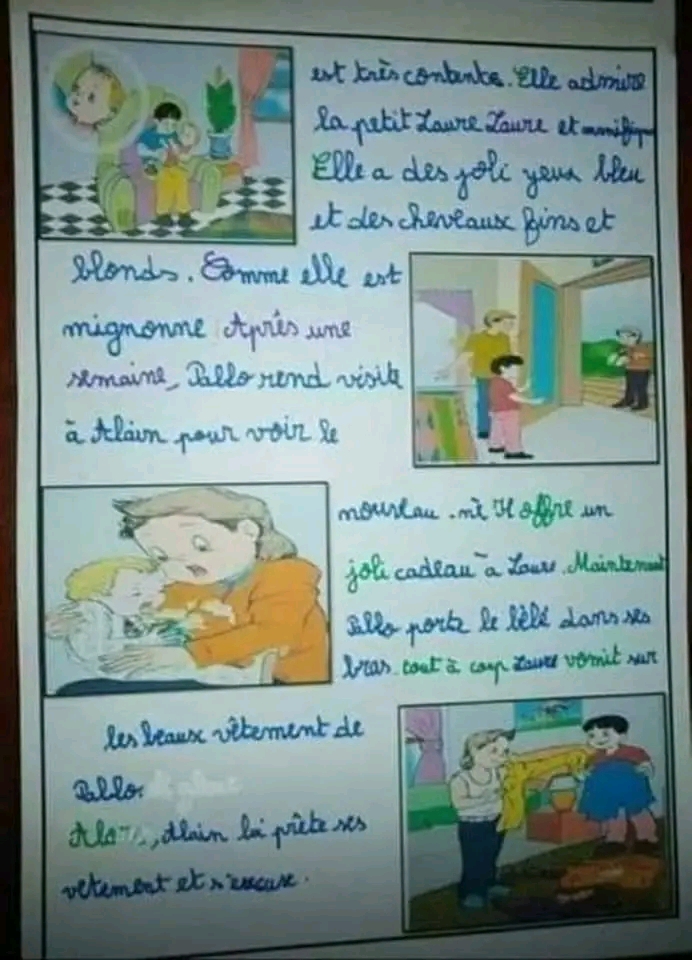 est très contente. Elle admire
la petit Laure Laure et
Elle a des joli yeux bleu
et des cheveaux fins et
blonds. Comme elle est
mignonne Après une
semaine, Pablo rend visite
à Alain pour voir le
nouveau - né Il offre un
joli cadeau à Laure. Maintenant
Pablo porte le bébé dans ses
bras. tout à coup Laure vomit sur
les beaux vêtement de
Pablo.
Alors, Alain lui prête ses
vetement et s'excuse.